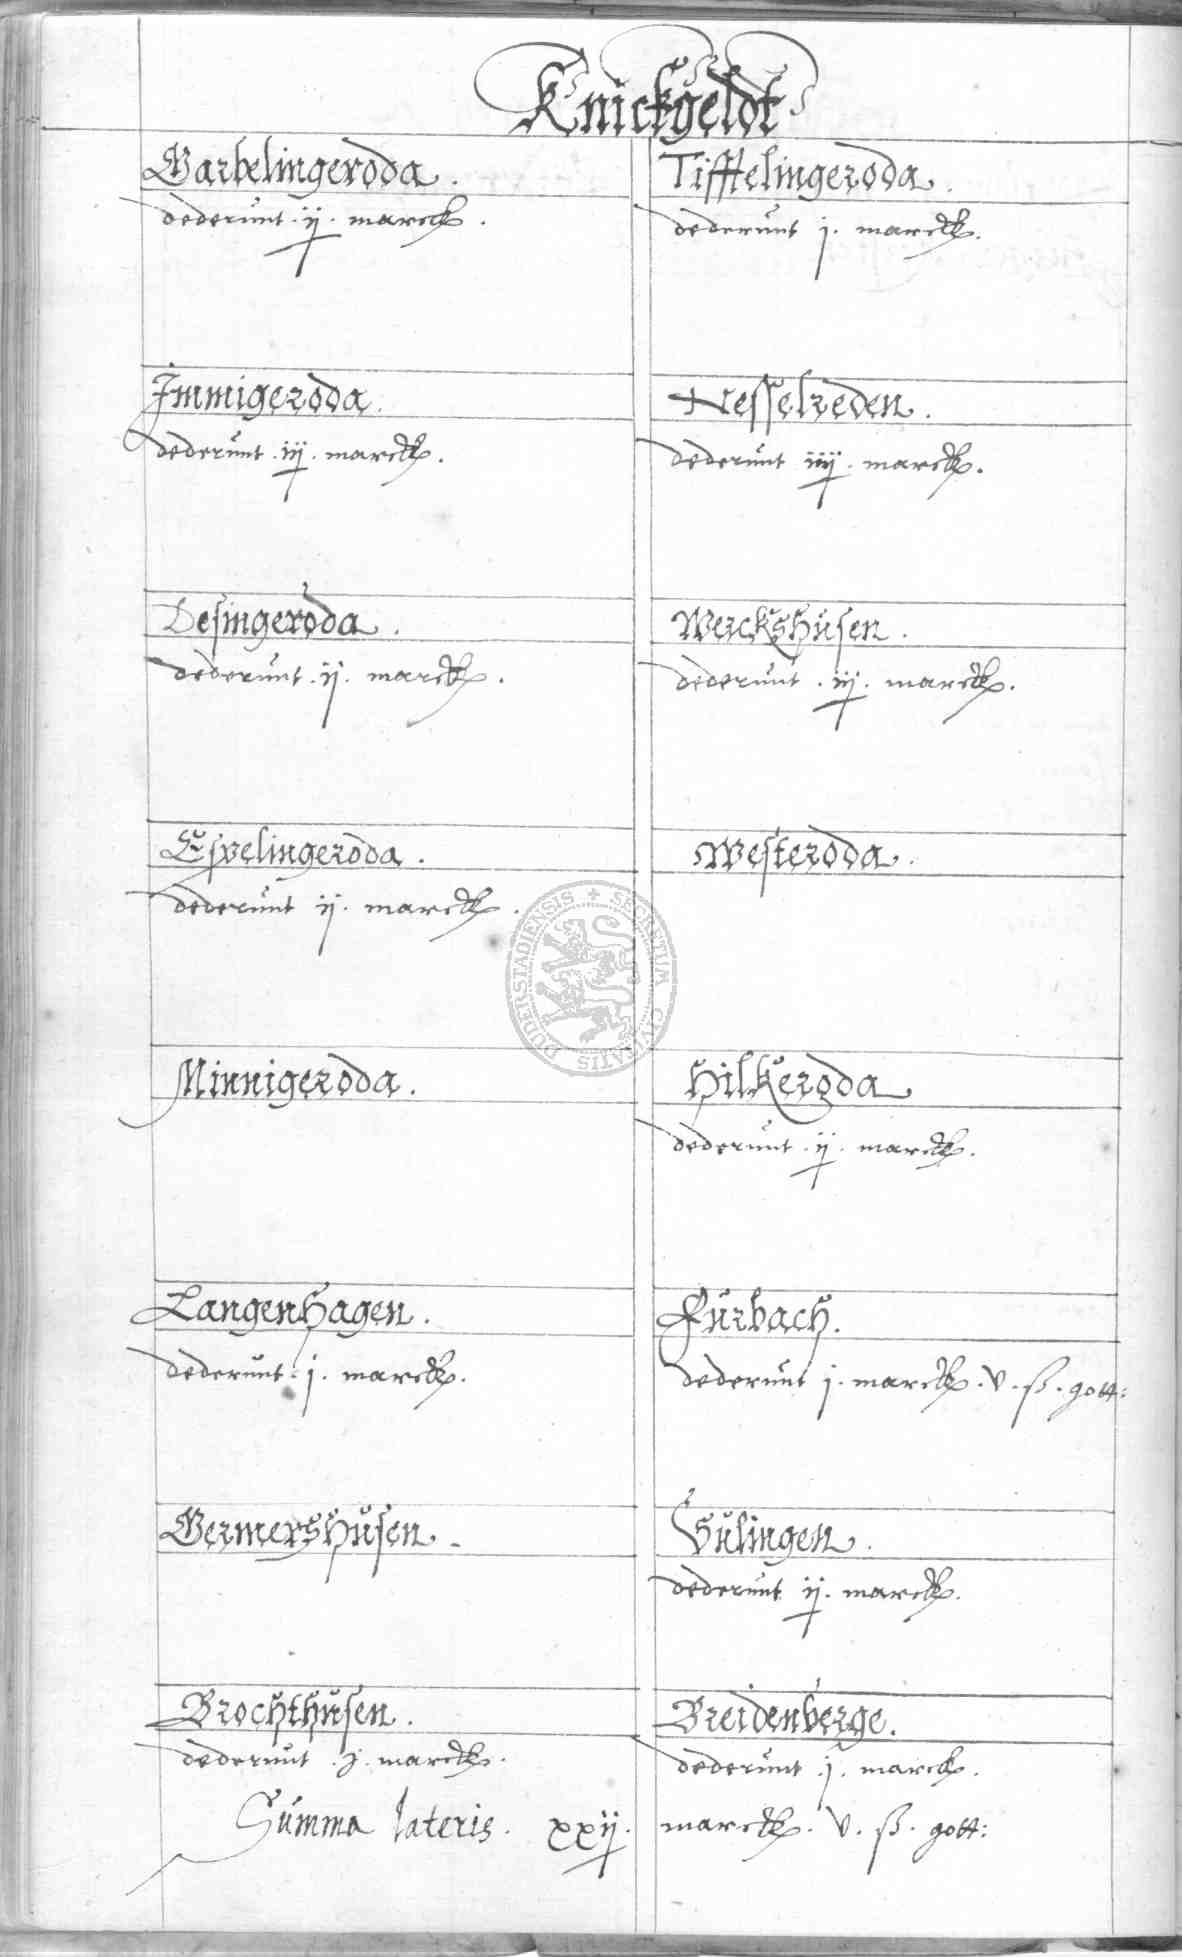 Knickgeldt
Garbelingeroda.
dederunt . ij . marck .
Tifftelingeroda.
dederunt j . marck.
Immigeroda.
dederunt . iij . marck.
Nesselreden.
dederunt iiij . marck.
Desingeroda.
dederunt . ij . marck.
Werckshusen.
dederunt . iij . marck.
Espelingeroda.
dederunt ij . marck.
Westeroda.
Minnigeroda.
Hilkeroda
dederunt . ij . marck.
Langenhagen.
dederunt . j . marck.
Furbach.
dederunt j . marck . v . ß . gott:
Germershusen.
Fulingen.
dederunt ij . marck.
Brochthusen.
dederunt . j . marck.
Breidenberge.
dederunt . j . marck.
Summa lateris . xxij . marck . v . ß . gott:
SECRETUM CIVITATIS DUDERSTADIENSIS